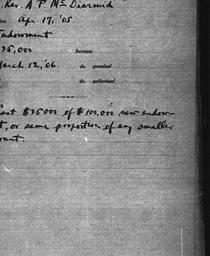 Rev. A. P. McDiarmid
on Apr. 17, '05.
Endowment
25,000 Increase
March 12, '06. do. promised
do. authorized
last $25000 of $100,000 new endow-
t, or same proportion of any smaller
ount.